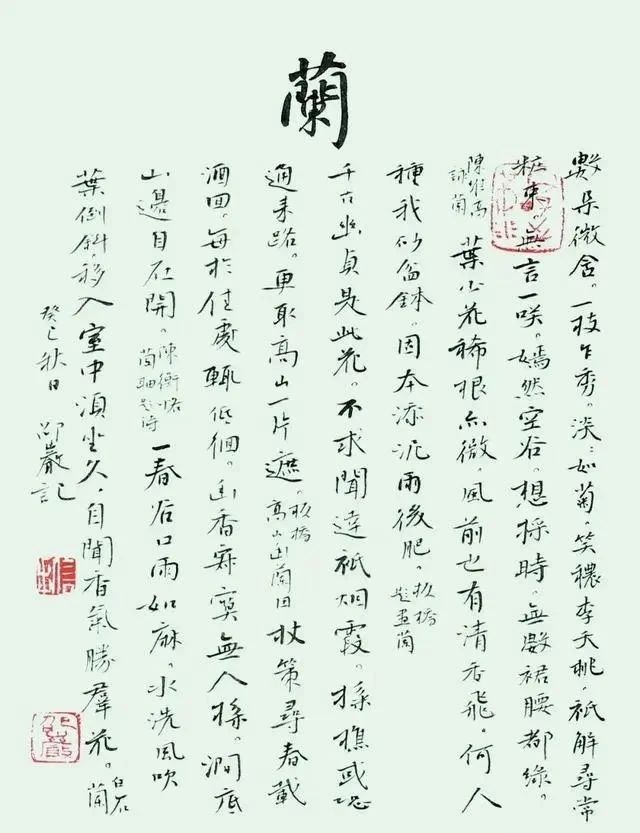 蘭
數朵微含。一枝乍秀。淡:如菊。笑穠李夭桃。祇解尋常
粧束。無言一咲。嫣然空谷。想採時。無數裙腰都綠。
陳維崧詠蘭 葉少花稀根亦微。風前也有清香飛。何人
種我砂盆缽。因本添泥雨後肥。板橋題畫蘭
千古幽貞是此花。不求聞達祇烟霞。採樵或恐
通來路。更取高山一片遮。板橋高山幽蘭圖 杖策尋春載
酒回。每於佳處輒低徊。幽香寂寞無人採。澗底
山邊自在開。陳衡恪蘭軸題詩 一春谷口雨如麻。水洗風吹
葉倒斜。移入室中須坐久。自聞香氣勝羣花。白石蘭
癸巳秋日 邵巖記